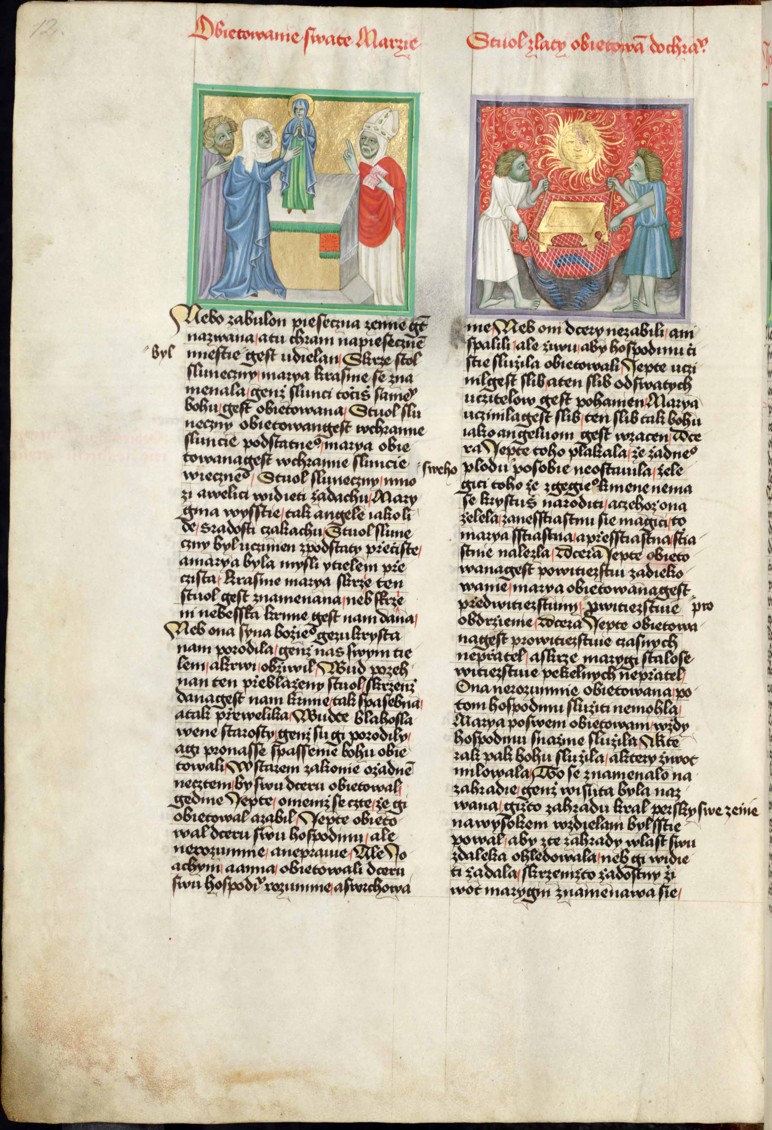 12.
Obietowanie swate Marzie
Stuol zlaty obietowā do chrā
Nebo zabulon pieseczna zemie gt
nazwana, a tu chram na pieseczne
byl
miestie gest udielan, Skrze stol
sluneczny, marya krasnie se zna
menala, genz slunci totiz samey
bohu, gest obietowana, Stuol slu
neczny obietowan gest w chramie
sluncie podstatneo, marya obie
towana gest w chramie sluncie
wieczneo, Stuol slunecny, mno
zi a welici widieti zadachu, Mary
gina wyssie, tak angele iako li
de, s radosti czakachu, Stuol slune
czny byl uczinen z podstaty preciste,
a marya byla mysli y tielem pre
czista, krasnie marya skrze ten
stuol gest znamenana, neb skrze
ni nebesska krmie gest nam dana,
Neb ona syna bozieo gezukrysta
nam porodila, genz nas swym tie
lem, a krwi, obziwil, Bud pozeh
nan ten preblazeny stuol, skrzenz
dana gest nam krmie, tak spasebna,
a tak prewelika, Budte blahosla
wene starosty, genz su gi porodily,
a gi pro nasse spassenie bohu obie
towali, W starem zakonie o zadne
neczten, by swu dceru obietowal,
gedine Jepte, o niemz se czte, ze gi
obietowal a zabil, Jepte obieto
wal dceru swu hospodinu, ale
nerozumnie, a neprawie, Ale Jo
achym a anna, obietowali dceru
swu hospodiō rozumnie, a swrchowa
nie, Neb oni dcery nezabili, ani
spalili, ale zywu, aby hospodinu cti
stie sluzila obietowali, Jepte uczi
nil gest slib, a ten slib od swatych
uczitelow gest pohanien, Marya
uczinila gest slib, ten slib tak bohu
iako angeluom gest wzacen, Dce
ra Jepte toho plakala, ze zadneo
sweho
plodu po sobie neostawila, zele
gici toho ze z gegieo kmene nema
se krystus naroditi, a czehoz ona
zelela, za nesstiastnu sie magici, to
marya sstiastna, a presstiastna, stia
stnie nalezla, Dcera Jepte obieto
wana gest po witiezstwi zadieko
wanie, marya obietowana gest
pred witiezstwim, witiezstwie
pro
obdrzenie, Dcera Jepte obietowa
na gest pro witiezstwie czasnych
nepratel, a skrze marygi stalo se
witiezstwie pekelnych nepratel,
Ona nerozumnie obietowana, po
tom hospodinu sluziti nemohla,
Marya po swem obietowani, wzdy
hospodinu snazne sluzila, Akte
rak pak bohu sluzila, a ktery ziwot
milowala, To se znamenalo na
zahradie, genz wisuta byla naz
wana, gizto zahradu kral persky
swe zenie
na wysokem wzdielani byl sstie
powal, aby z te zahrady wlast swu
zdaleka ohledowala, neb gi widie
ti zadala, skrzenizto zadostny zi
wot marygin znamenawa sie,